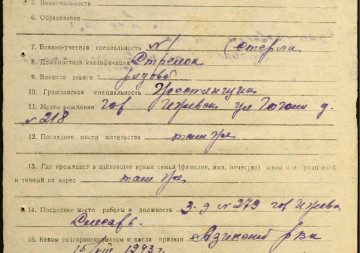 5. Национальность
6. Образование
7. Военно-учетная специальность №1
8. Должностная квалификация Стрелок
9. Военное звание рядовой
10. Гражданская специальность
11. Место рождения гор Ижевск ул Гоголя д.
№ 218
12. Последнее место жительства там же
13. Где проживает в настоящее время семья (фамилия, имя, отчество) жены или родителей
и точный их адрес там же
14. Последнее место работы и должность з-д № 279 гор Ижевск
Слесарь
15. Каким райгорвоенкоматом и когда призван рвк
1943 г.